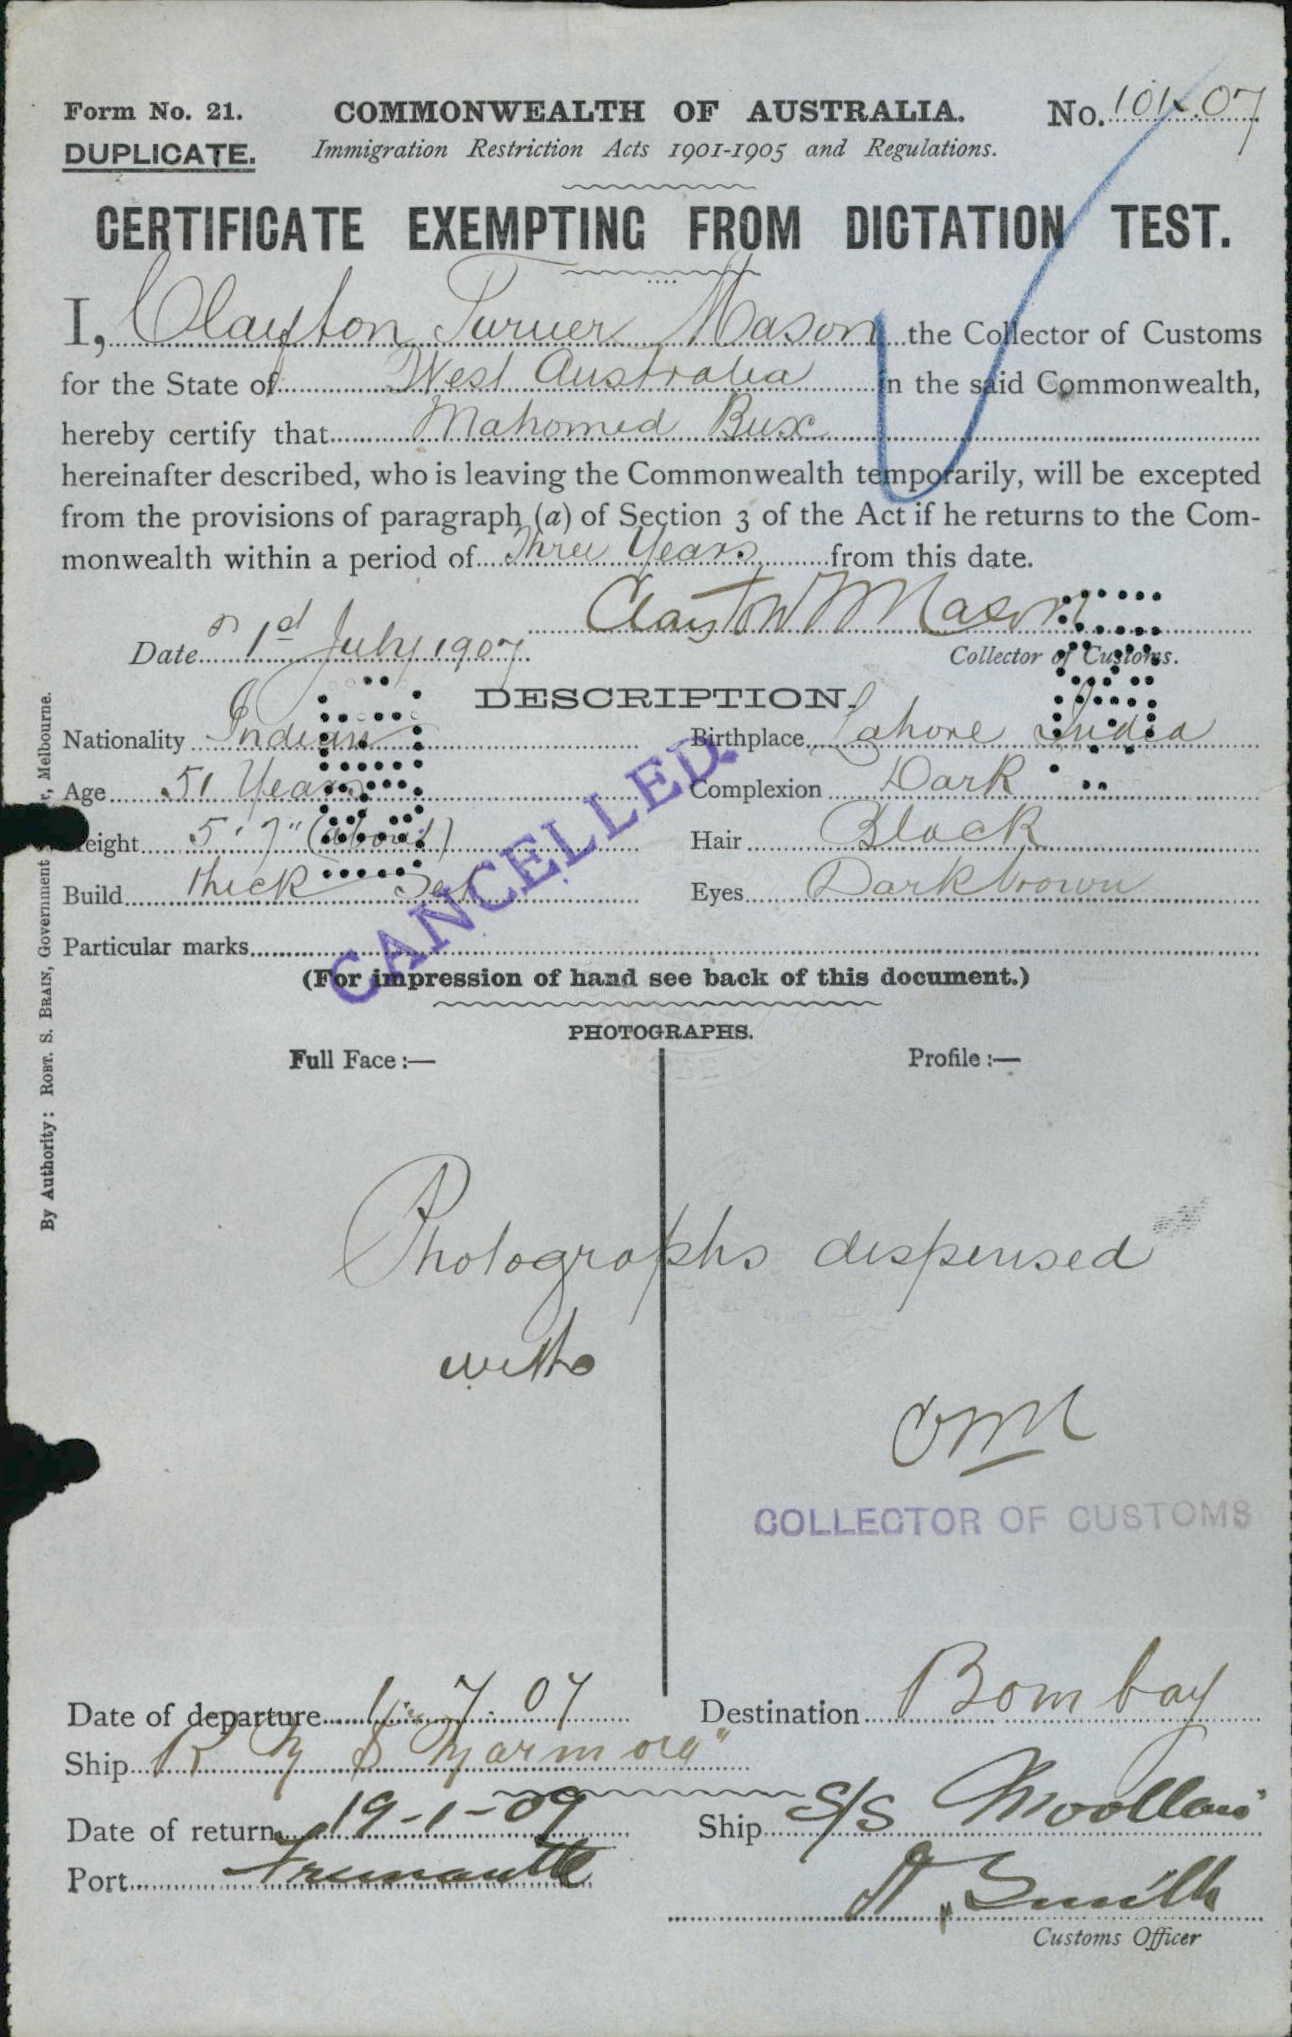 Form No. 21. COMMONWEALTH OF AUSTRALIA. No. 101.07
DUPLICATE. Immigration Restriction Acts 1901-1905 and Regulations.
CERTIFICATE EXEMPTING FROM DICTATION TEST.
I, Clayton Turner Mason the Collector of Customs
for the State of West Australia in the said Commonwealth,
hereby certify that Mahomed Bux
hereinafter described, who is leaving the Commonwealth temporarily, will be excepted
from the provisions of paragraph (a) of Section 3 of the Act if he returns to the Com-
monwealth within a period of Three Years from this date.
Clayton T Mason
Date 1st July 1907 Collector of Customs.
DESCRIPTION.
Nationality Indian Birthplace Lahore India
Age 51 Years Complexion Dark
Height 5' 7" (about) Hair Black
Build thick Set Eyes Dark brown
Particular marks
CANCELLED.
(For impression of hand see back of this document.)
PHOTOGRAPHS.
Full Face :— Profile :—
Photographs dispensed
with
CTM
COLLECTOR OF CUSTOMS
Date of departure 1. 7. 07 Destination Bombay
Ship R M S Marmora"
Date of return 19-1-09 Ship S/S
Port Fremantle
Smith
Customs Officer
By Authority: ROBT. S. BRAIN, Government Melbourne.